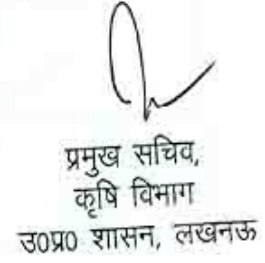 प्रमुख सचिव,
कृषि विभाग
उ०प्र० शासन, लखनऊ